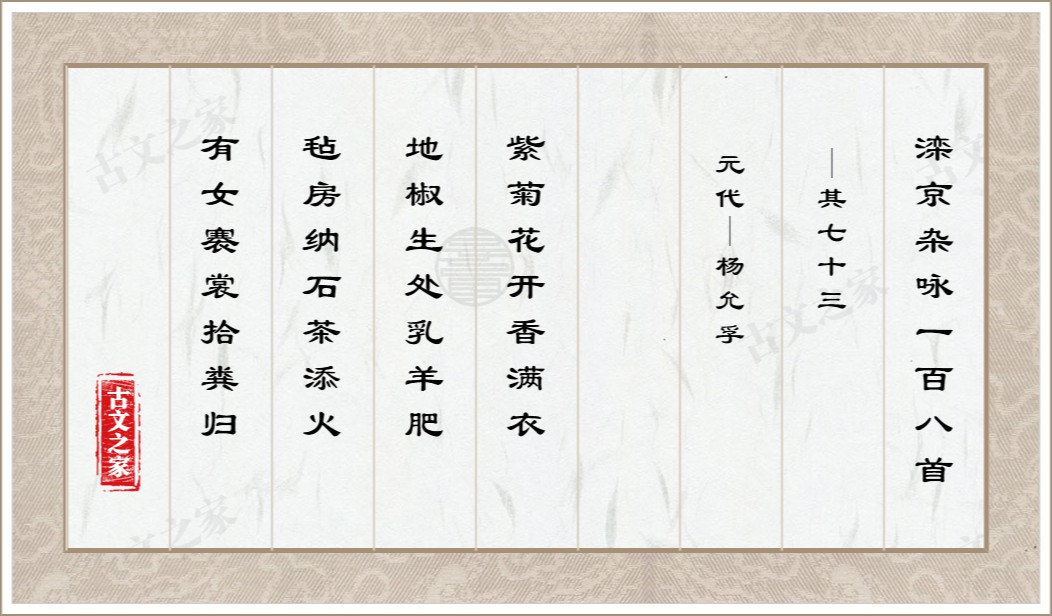 滦京杂咏一百八首
—其七十三
元代—杨允孚
紫菊花开香满衣
地椒生处乳羊肥
毡房纳石茶添火
有女褰裳拾粪归
古文之家
古文之家
古文之家
古文之家
古文之家